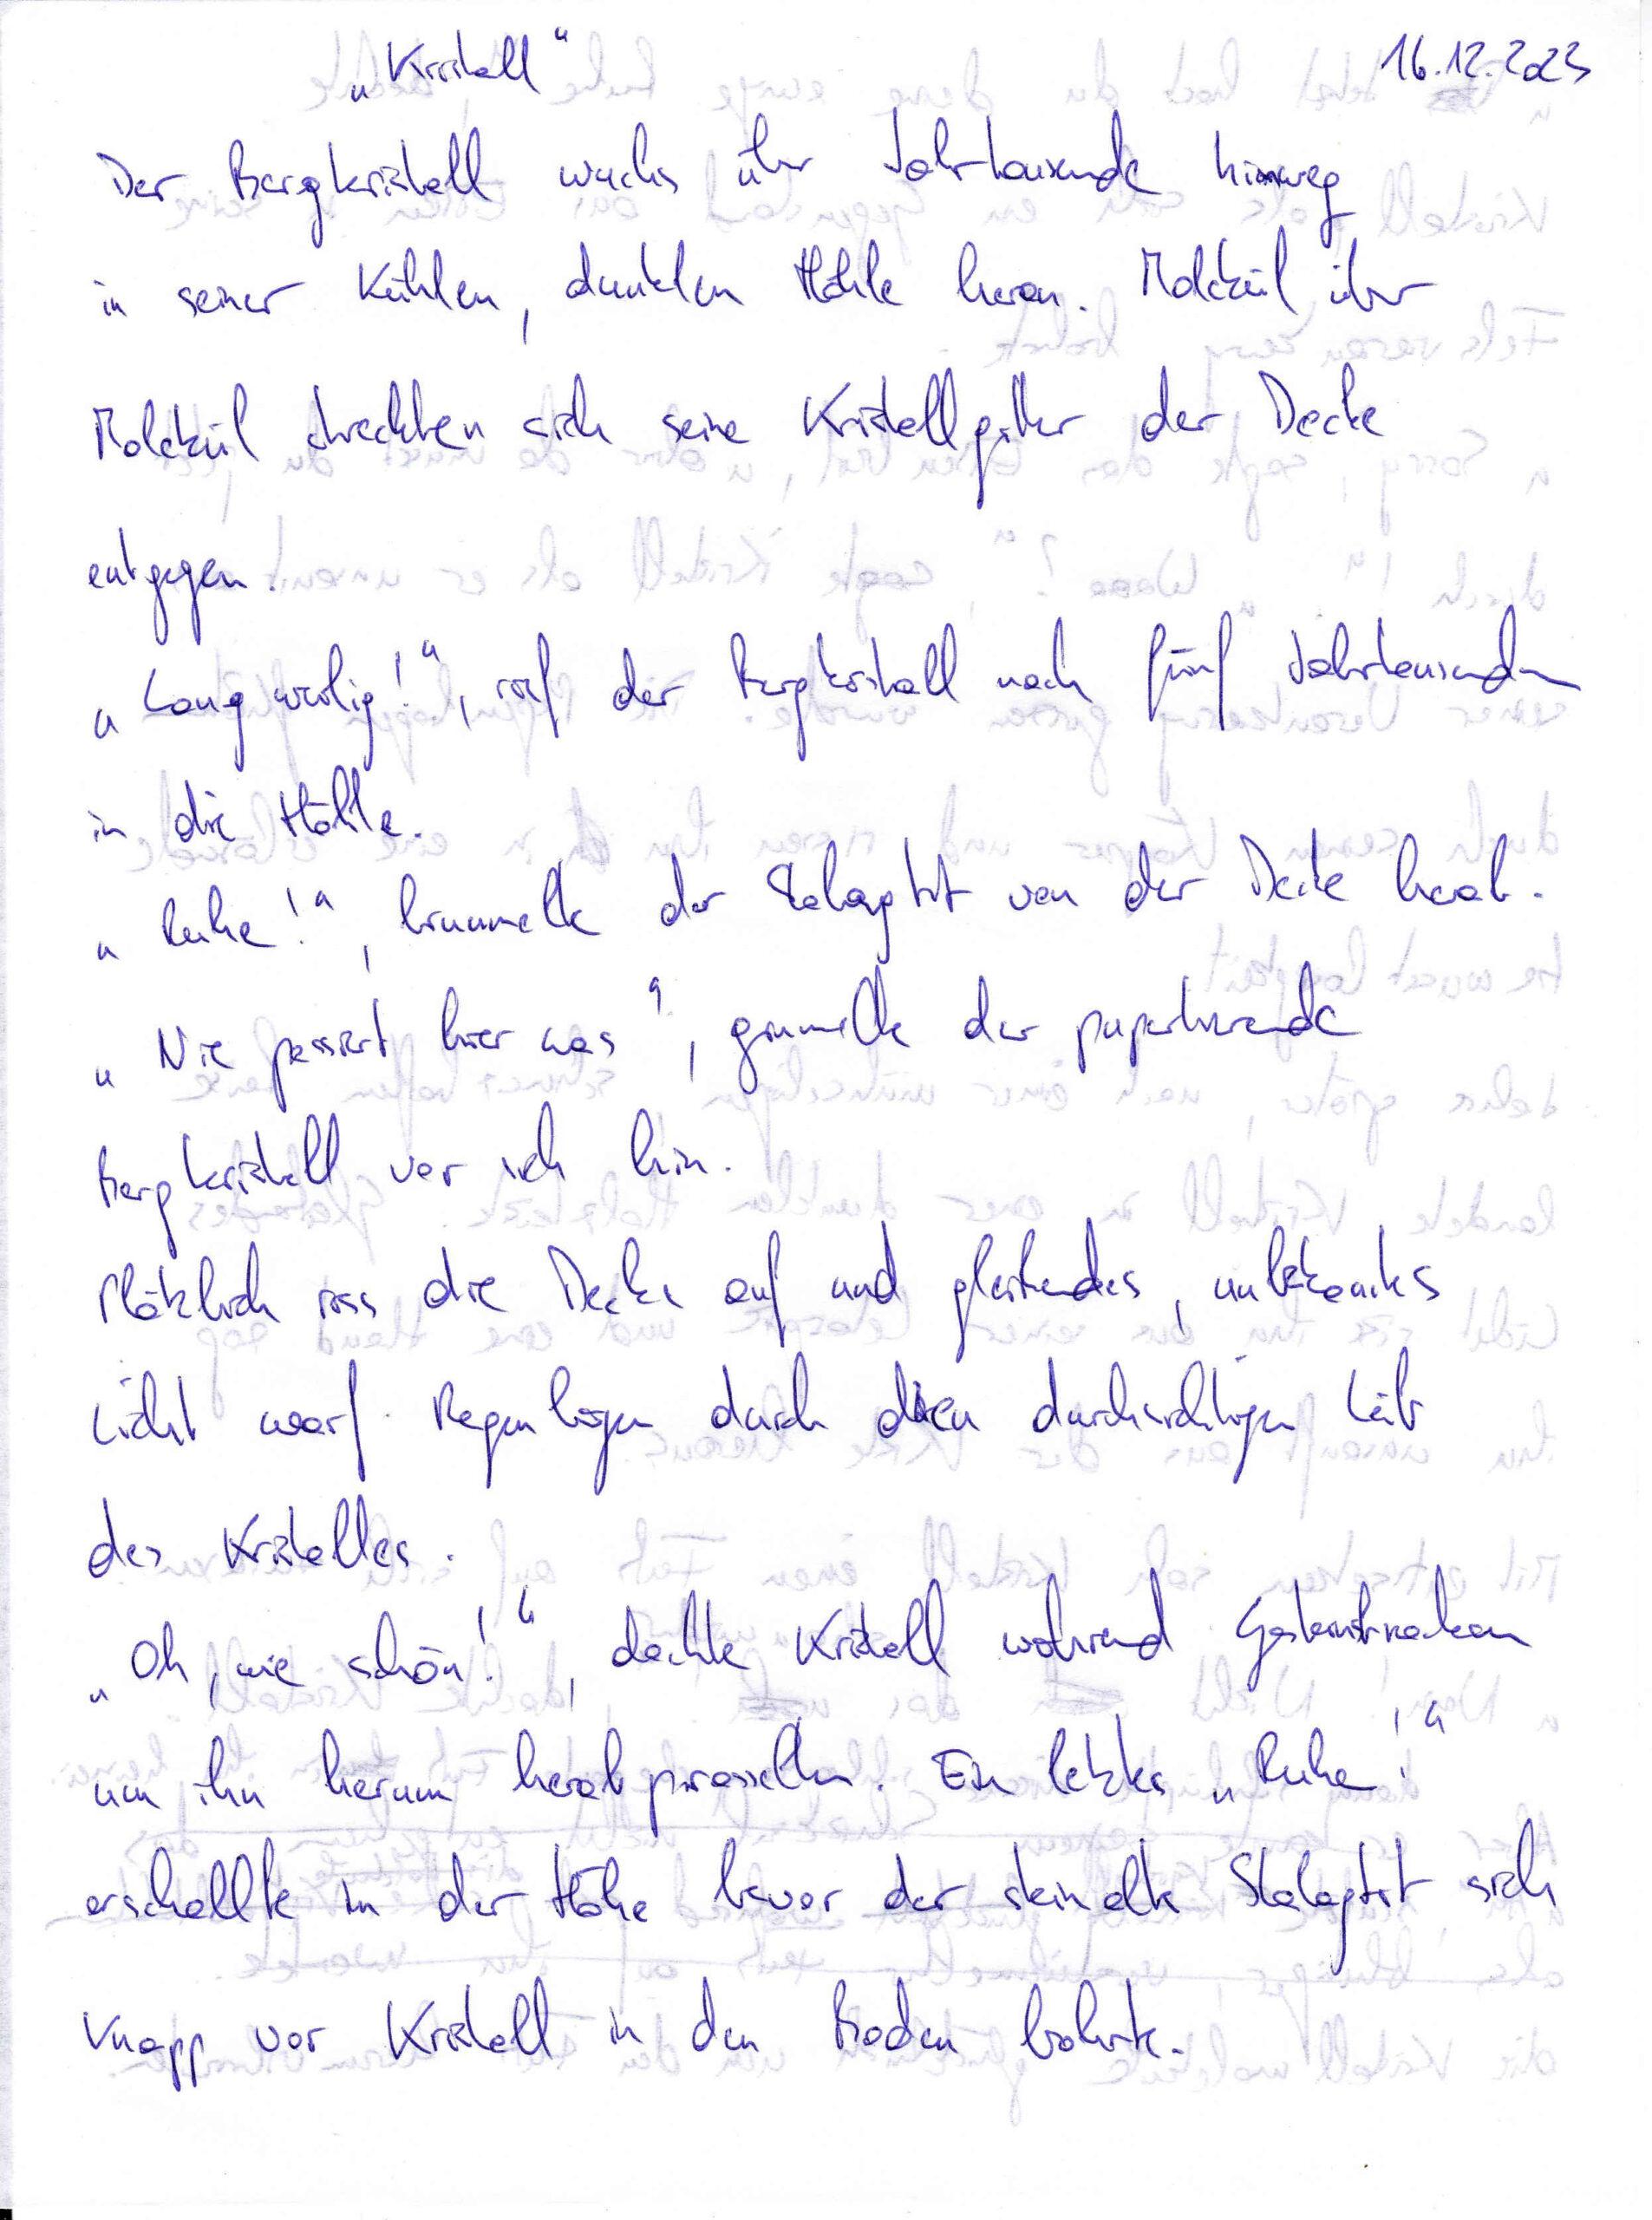 „Kristall“ 16.12.2023
Der Bergkristall wuchs über Jahrtausende hinweg
in seiner kühlen, dunklen Höhle heran. Molekül über
Molekül streckten sich seine Kristallgitter der Decke
entgegen.
„Langweilig!“, rief der Bergkristall nach fünf Jahrtausenden
in die Höhle.
„Ruhe!“, brummelte der Stalagtit von der Decke herab.
„Nie passiert hier was“, grummelte der pupertierende
Bergkristall vor sich hin.
Plötzlich riss die Decke auf und gleißendes, unbekanntes
Licht warf Regenbogen durch den durchsichtigen Leib
des Kristalles.
„Oh, wie schön!“, dachte Kristall während Gesteinsbrocken
um ihn herum herabprasselten. Ein letztes „Ruhe!“
erschallte in der Höhe bevor der steinalte Stalagtit sich
knapp vor Kristall in den Boden bohrte.